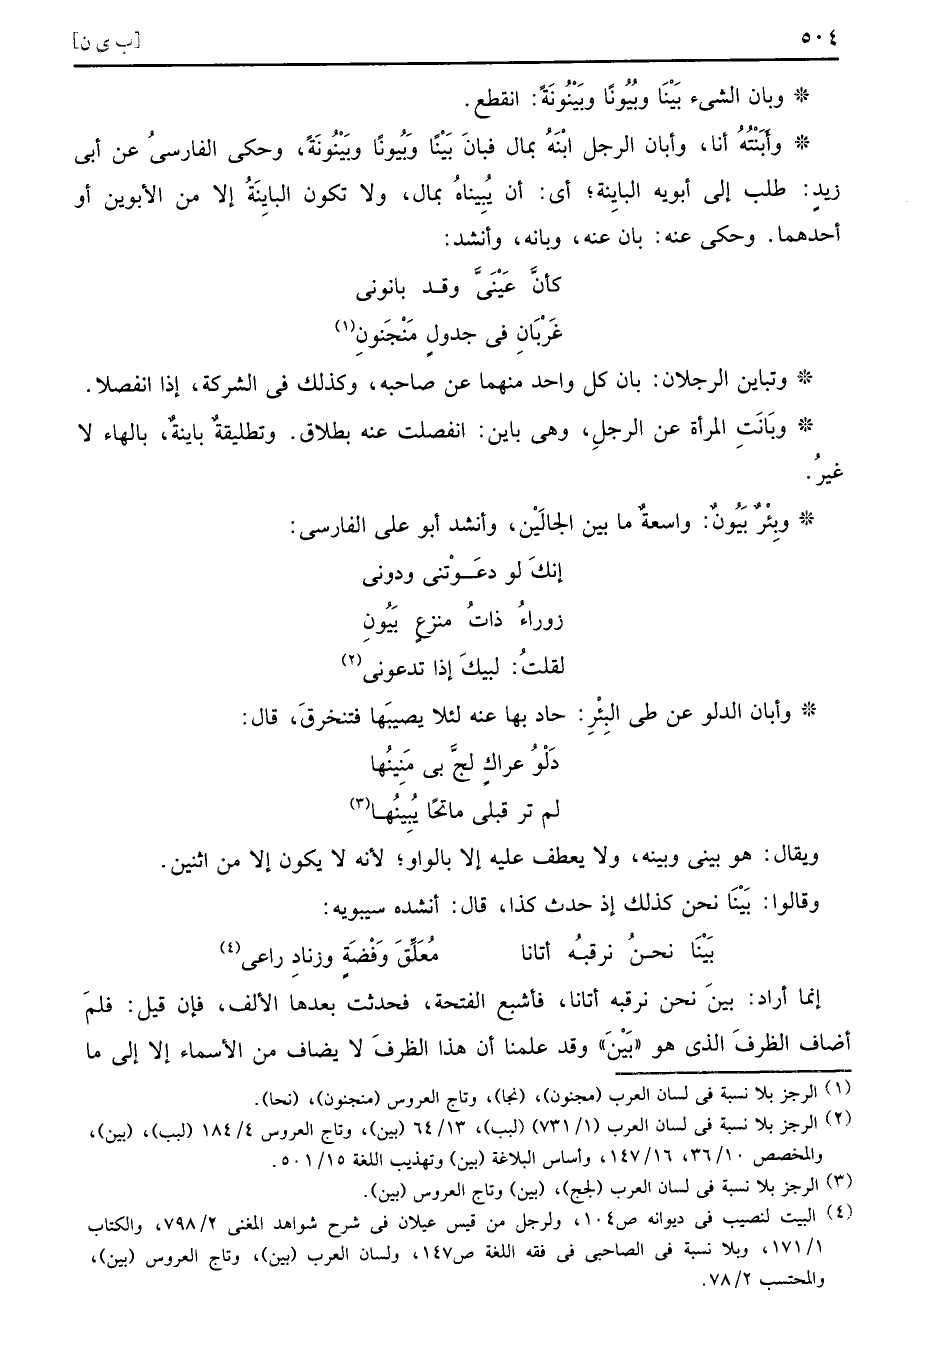 ٥٠٤
[ب ى ن]
* وبان الشىء بَيْنَا وبُيُونًا وبَيْنُونَةً: انقطع.
* وأَبَنْتُهُ أنا، وأبان الرجل ابْنَهُ بمال فبانَ بَيْنًا وبُيُونًا وبَيْنُونَةً، وحكى الفارسىُ عن أبى
زيدٍ: طلب إلى أبويه الباينة؛ أى: أن يُبِيناهُ بمال، ولا تكون البايِنَةُ إلا من الأبوين أو
أحدهما. وحكى عنه: بان عنه، وبانه، وأنشد:
كأنَّ عَيْنَىَّ وقـد بانونى
غَرْبَانِ فى جدولٍ مَنْجَنونِ(١)
* وتباين الرجلان: بان كل واحد منهما عن صاحبه، وكذلك فى الشركة، إذا انفصلا.
* وبَانَتِ المرأة عن الرجلِ، وهى باين: انفصلت عنه بطلاق. وتطليقةٌ باينةٌ، بالهاء لا
غيرُ.
* وبِئْرٌ بَيُونٌ: واسعةٌ ما بين الجالَيْن، وأنشد أبو على الفارسى:
إنكَ لو دعَـوْتنى ودونى
زوراءُ ذاتُ منزعٍ بَيُونِ
لقلتُ: لبيكَ إذا تدعونى(٢)
* وأبان الدلو عن طى البِئْرِ: حاد بها عنه لئلا يصيبَها فتنخرقَ، قال:
دَلْوُ عراكٍ لجَّ بى مَنِينُها
لم تر قبلى ماتحًا يُبِينُهـا(٣)
ويقال: هو بينى وبينه، ولا يعطف عليه إلا بالواو؛ لأنه لا يكون إلا من اثنين.
وقالوا: بَيْنَا نحن كذلك إذ حدث كذا، قال: أنشده سيبويه:
بَيْنَا نحـنُ نرقبُـه أتانا مُعَلِّقَ وَفْضَةٍ وزِنادِ راعى(٤)
إنما أراد: بينَ نحن نرقبه أتانا، فأشبع الفتحة، فحدثت بعدها الألف، فإن قيل: فلمَ
أضاف الظرفَ الذى هو «بَيْنَ» وقد علمنا أن هذا الظرفَ لا يضاف من الأسماء إلا إلى ما
(١) الرجز بلا نسبة فى لسان العرب (مجنون)، (نجا)، وتاج العروس (منجنون)، (نحا).
(٢) الرجز بلا نسبة فى لسان العرب (١/ ٧٣١) (لبب)، ١٣/ ٦٤ (بين)، وتاج العروس ٤/ ١٨٤ (لبب)، (بين)،
والمخصص ١٠/ ٣٦، ١٦/ ١٤٧، وأساس البلاغة (بين) وتهذيب اللغة ١٥/ ٥٠١.
(٣) الرجز بلا نسبة فى لسان العرب (لجج)، (بين) وتاج العروس (بين).
(٤) البيت لنصيب فى ديوانه ص١٠٤، ولرجل من قيس عيلان فى شرح شواهد المغنى ٢/ ٧٩٨، والكتاب
١/ ١٧١، وبلا نسبة فى الصاحبى فى فقه اللغة ص١٤٧، ولسان العرب (بين)، وتاج العروس (بين)،
والمحتسب ٢/ ٧٨.